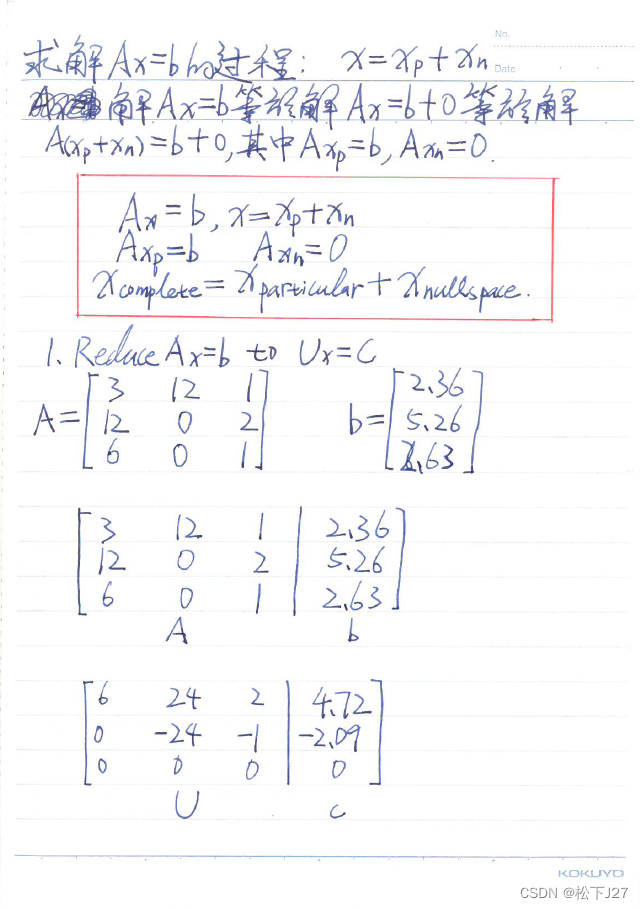 No.
求解Ax=b的过程: x=xp+xn
Date
解Ax=b等於解Ax=b+0等於解
A(xp+xn)=b+0,其中Axp=b, Axn=0.
Ax=b, x=xp+xn
Axp=b Axn=0
xcomplete=xparticular+xnullspace.
1. Reduce Ax=b to Ux=C
3 12 1 2.36
A= 12 0 2 b= 5.26
6 0 1 2.63
3 12 1 | 2.36
12 0 2 | 5.26
6 0 1 | 2.63
A b
6 24 2 | 4.72
0 -24 -1 | -2.09
0 0 0 | 0
U c
KOKUYO
CSDN @松下J27